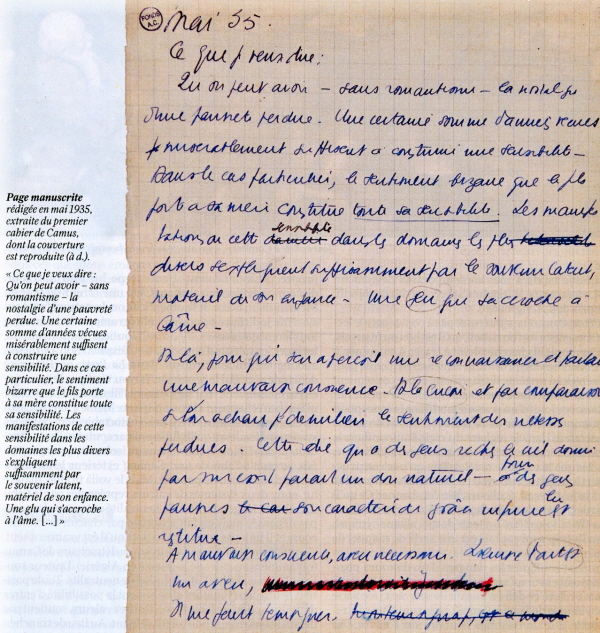 Page manuscrite
rédigée en mai 1935,
extraite du premier
cahier de Camus,
dont la couverture
est reproduite (à d.).
« Ce que je veux dire :
Qu'on peut avoir – sans
romantisme – la
nostalgie d'une pauvreté
perdue. Une certaine
somme d'années vécues
misérablement suffisent
à construire une
sensibilité. Dans ce cas
particulier, le sentiment
bizarre que le fils porte
à sa mère constitue toute
sa sensibilité. Les
manifestations de cette
sensibilité dans les
domaines les plus divers
s'expliquent
suffisamment par
le souvenir latent,
matériel de son enfance.
Une glu qui s'accroche
à l'âme. [...] »
FONDS
A.C.
Mai 35.
Ce que je veux dire :
Qu'on peut avoir – sans romantisme – la nostalgie
d'une pauvreté perdue. Une certaine somme d'années vécues
misérablement suffisent à construire une sensibilité –
Dans le cas particulier, le sentiment bizarre que le fils
porte à sa mère constitue toute sa sensibilité. Les manifes
tations de cette sensibilité dans les domaines les plus
divers s'expliquent suffisamment par le souvenir latent,
matériel de son enfance – Une glu qui s'accroche à
l'âme –
De là, pour qui s'en aperçoit une reconnaissance et partant
une mauvaise conscience. De là encore et par comparaison
si l'on a changé de milieu le sentiment des richesses
perdues. Cette été qu'a des gens riches le ciel donné
par surcroît paraît un don naturel – pour les gens
pauvres son caractère de grâce infinie lui est
restitué –
A mauvaise conscience, aveu nécessaire. L'œuvre est
un aveu,
Il me faut témoigner.